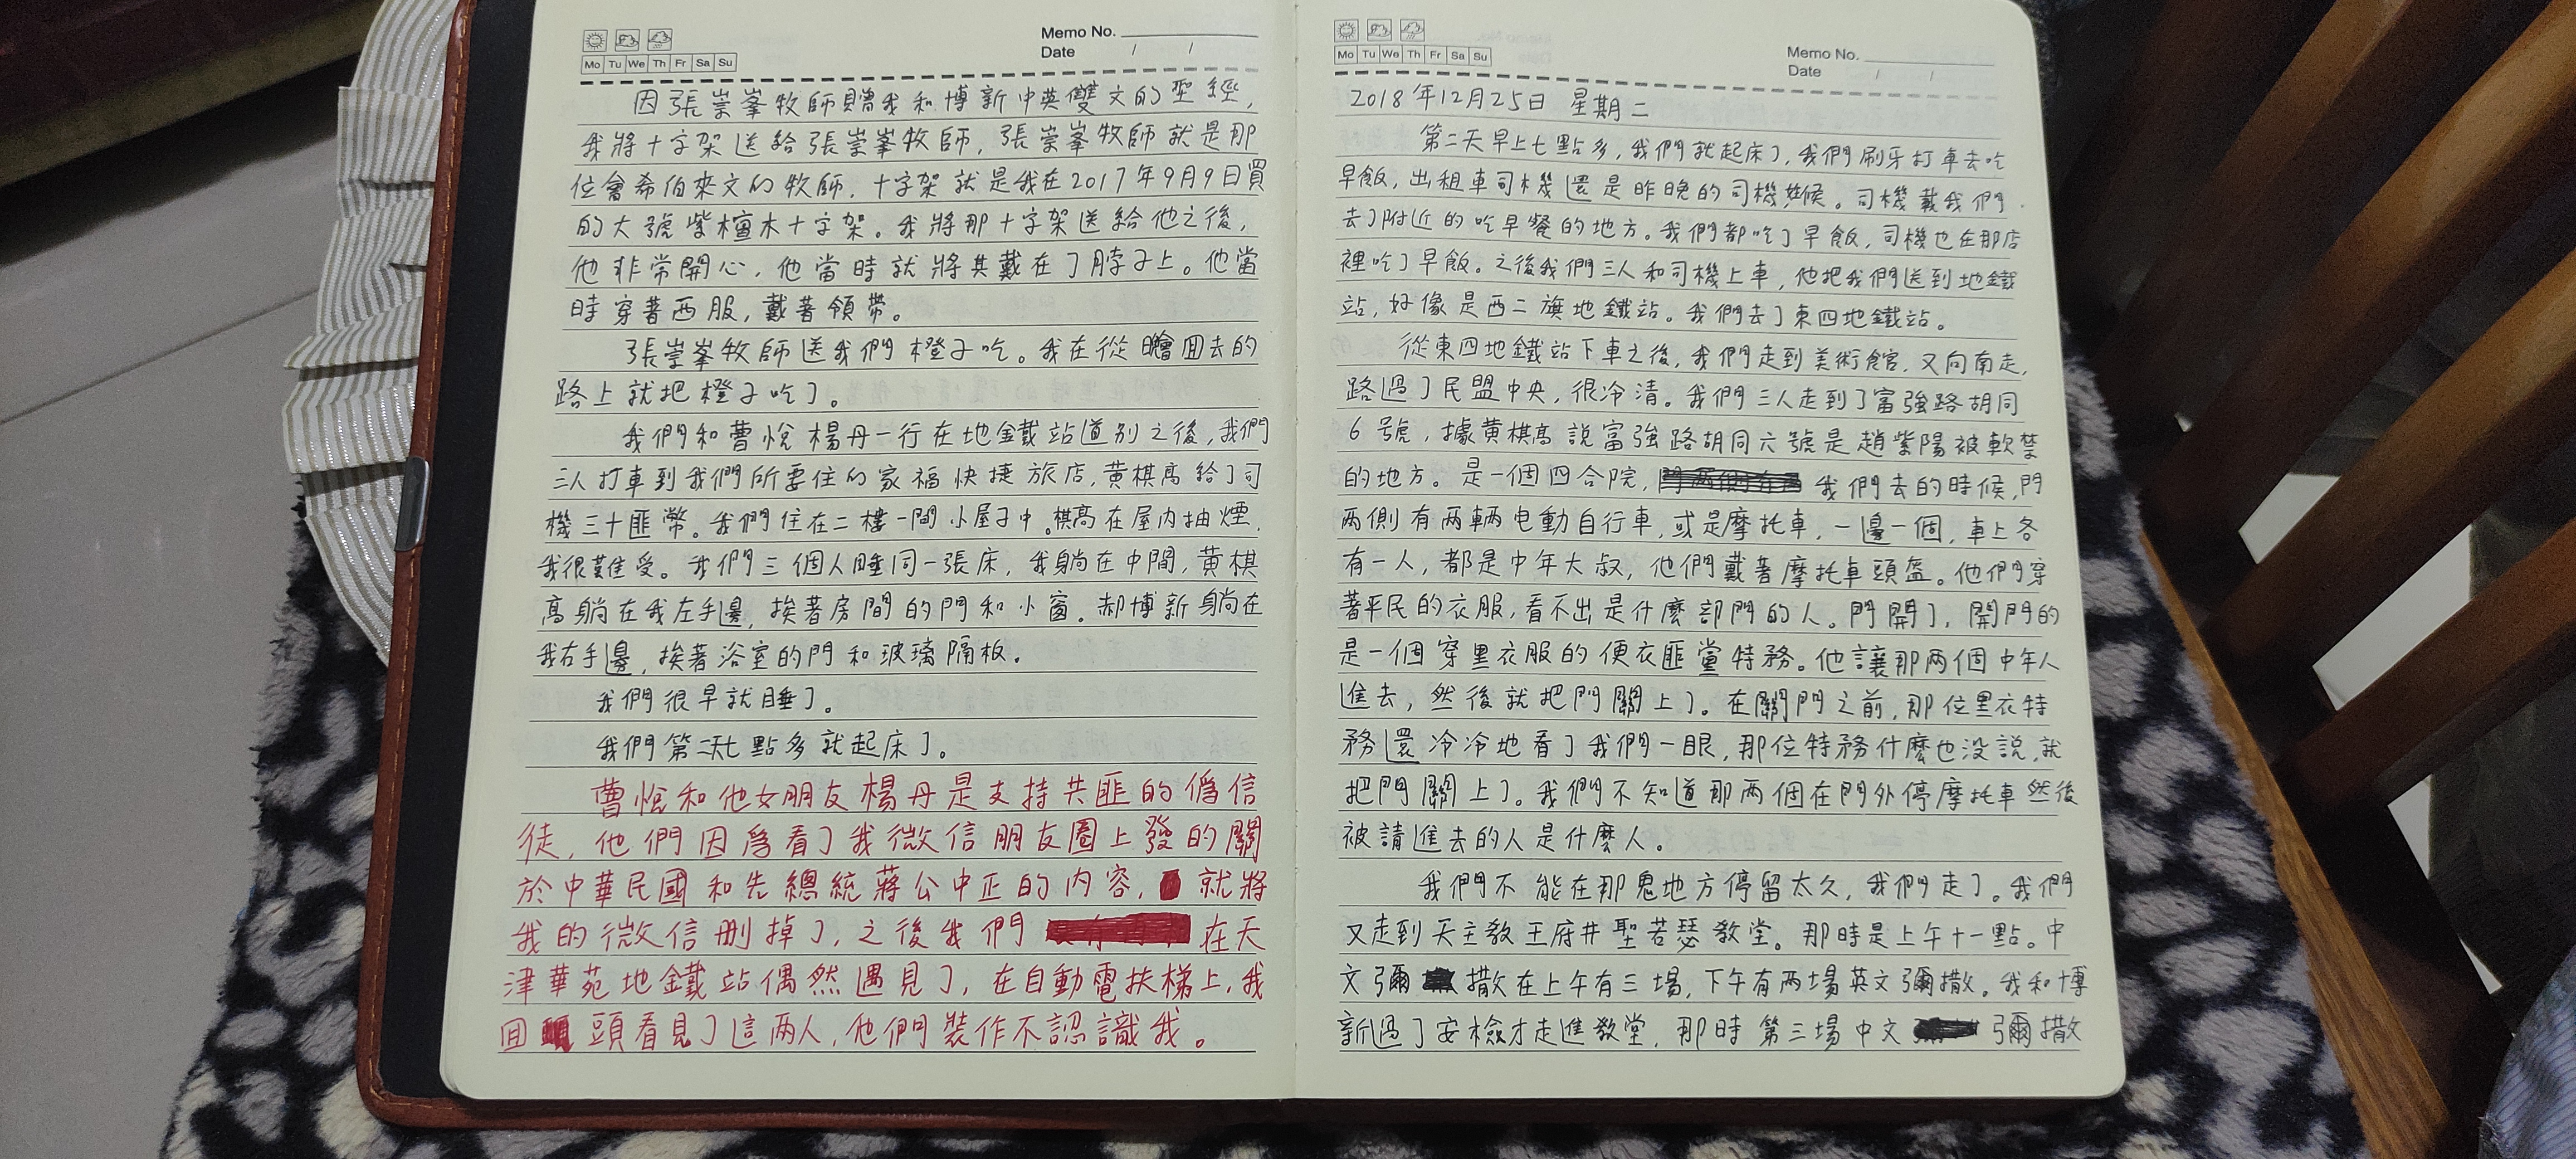 Memo No.
Mo Tu We Th Fr Sa Su
Date / /
因張崇峯牧師贈我和博新中英雙文的聖經,
我將十字架送給張崇峯牧師,張崇峯牧師就是那
位會希伯來文的牧師,十字架就是我在2017年9月9日買
的大號紫檀木十字架。我將那十字架送給他之後,
他非常開心,他當時就將其戴在了脖子上。他當
時穿著西服,戴著領帶。
張崇峯牧師送我們橙子吃。我在從瞻囬去的
路上就把橙子吃了。
我們和曹悅楊丹一行在地鐵站道别之後,我們
三人打車到我們所要住的家福快捷旅店,黄棋高給了司
機三十匪幣。我們住在二樓一間小屋子中。棋高在屋内抽煙,
我很難受。我們三個人睡同一張床,我躺在中間,黄棋
高躺在我左手邊,挨著房間的門和小窗。郝博新躺在
我右手邊,挨著浴室的門和玻璃隔板。
我們很早就睡了。
我們第二天七點多就起床了。
曹悅和他女朋友楊丹是支持共匪的僞信
徒,他們因爲看了我微信朋友圈上發的關
於中華民國和先總統蔣公中正的内容,就將
我的微信删掉了,之後我們在天
津華苑地鐵站偶然遇見了,在自動電扶梯上,我
囬頭看見了這两人,他們裝作不認識我。
Memo No.
Mo Tu We Th Fr Sa Su
Date / /
2018年12月25日 星期二
第二天早上七點多,我們就起床了,我們刷牙打車去吃
早飯,出租車司機還是昨晚的司機。司機載我們
去了附近的吃早餐的地方。我們都吃了早飯,司機也在那店
裡吃了早飯。之後我們三人和司機上車,他把我們送到地鐵
站,好像是西二旗地鐵站。我們去了東四地鐵站。
從東四地鐵站下車之後,我們走到美術館,又向南走,
路過了民盟中央,很冷清。我們三人走到了富強路胡同
6號,據黄棋高説富強路胡同六號是趙紫陽被軟禁
的地方。是一個四合院,我們去的時候,門
两側有两輛电動自行車,或是摩托車,一邊一個,車上各
有一人,都是中年大叔,他們戴著摩托車頭盔。他們穿
著平民的衣服,看不出是什麼部門的人。門開了,開門的
是一個穿黑衣服的便衣匪黨特務。他讓那两個中年人
進去,然後就把門關上了。在關門之前,那位黑衣特
務還冷冷地看了我們一眼,那位特務什麼也没説,就
把門關上了。我們不知道那两個在門外停摩托車然後
被請進去的人是什麼人。
我們不能在那鬼地方停留太久,我們走了。我們
又走到天主教王府井聖若瑟教堂。那時是上午十一點。中
文彌撒在上午有三場,下午有两場英文彌撒。我和博
新過了安檢才走進教堂,那時第三場中文彌撒